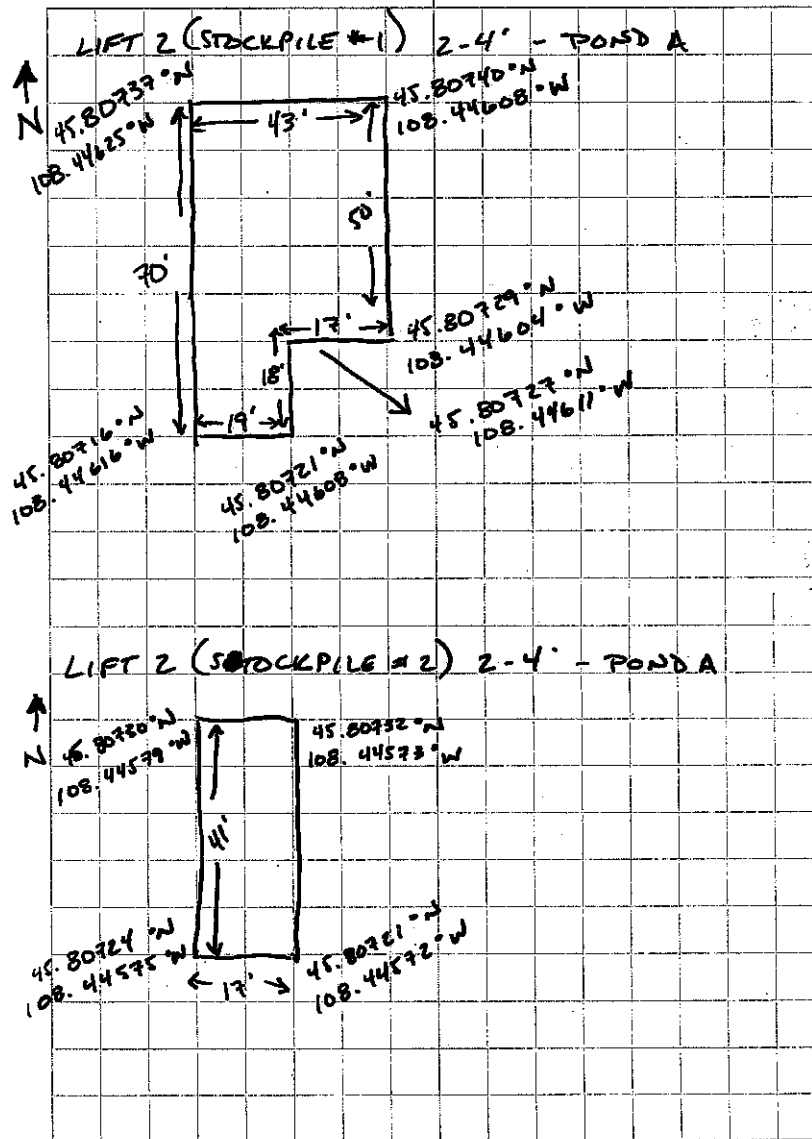 LIFT 2 (STOCKPILE #1) 2-4' - POND A
N
45.80737°N
108.44625°W
45.80740°N
108.44608°W
43'
50'
70'
17'
45.80729°N
108.44604°W
18'
45.80727°N
108.44611°W
19'
45.80716°N
108.44616°W
45.80721°N
108.44608°W
LIFT 2 (STOCKPILE #2) 2-4' - POND A
N
45.80730°N
108.44579°W
45.80732°N
108.44573°W
41'
45.80724°N
108.44575°W
17'
45.80721°N
108.44572°W